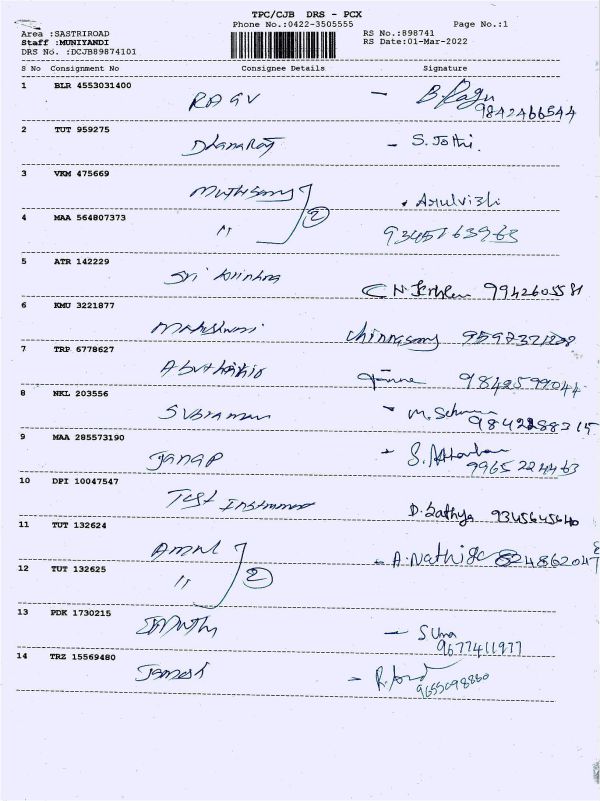 TPC/CJB DRS - PCX
Phone No.:0422-3505555 Page No.:1
Area :SASTRIROAD RS No.:898741
Staff :MUNIYANDI RS Date:01-Mar-2022
DRS No. :DCJB89874101
S No Consignment No Consignee Details Signature
1 BLR 4553031400
RAGV - B. Ragu
9842466544
2 TUT 959275
DhanaRaj - S. Jothi.
3 VKM 475669
Muthusamy Arulvizhi
4 MAA 564807373
" 2 9345763963
5 ATR 142229
Sri krishna 9942605581
6 KMU 3221877
Maheshwari Chinnasamy
7 TRP 6778627
9842599044
8 NKL 203556
Subraman - M.
9842288315
9 MAA 285573190
- S.
9965224463
10 DPI 10047547
Test Instrument D. Sathya 9345645640
11 TUT 132624
Amul - A.
12 TUT 132625
" 2
13 PDK 1730215
- S Uma
9677411977
14 TRZ 15569480
- R.